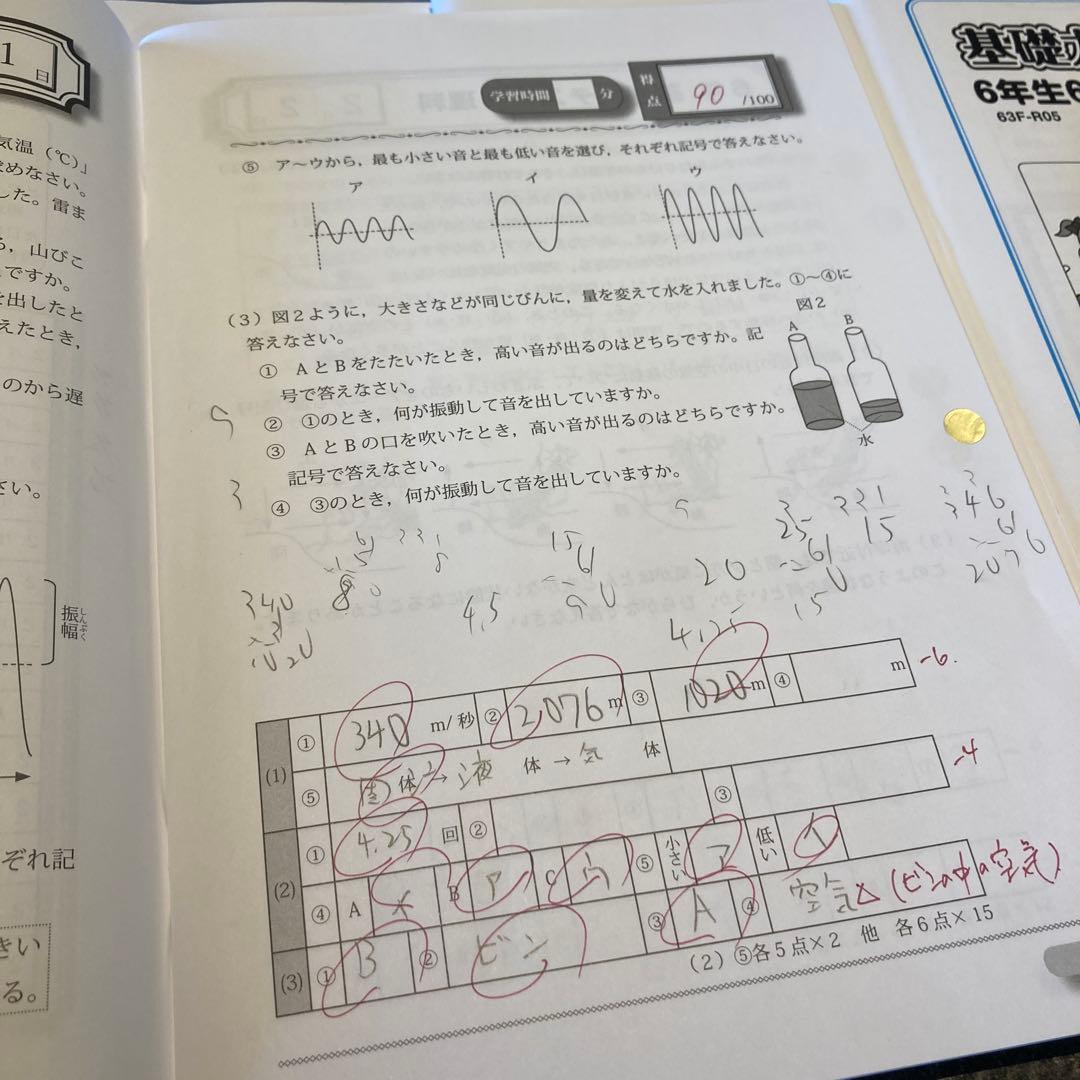 1日
気温(℃)」
めなさい。
した。雷ま
ら,山びこ
ですか。
を出したと
えたとき,
のから遅
さい。
振幅
しんぷく
ぞれ記
きい
る。
学習時間 分
得点 90 /100
⑤ ア〜ウから,最も小さい音と最も低い音を選び,それぞれ記号で答えなさい。
ア イ ウ
(3)図2ように,大きさなどが同じびんに,量を変えて水を入れました。①〜④に
答えなさい。
図2
A B
水
① AとBをたたいたとき,高い音が出るのはどちらですか。記
号で答えなさい。
② ①のとき,何が振動して音を出していますか。
③ AとBの口を吹いたとき,高い音が出るのはどちらですか。
記号で答えなさい。
④ ③のとき,何が振動して音を出していますか。
340
4.5
20
4.25
15
346
2076
(1) ① 340 m/秒 ② 2,076 m ③ 1020 m ④ m -6.
⑤ 固体→液体→気体
(2) ① 4.25 回 ② ③ -4
④ A イ B ア C ウ ⑤ 小さい ア 低い イ
(3) ① B ② ビン ③ A ④ 空気 △ (ビンの中の空気)
(2)⑤各5点×2 他 各6点×15
基礎
6年生6
63F-R05